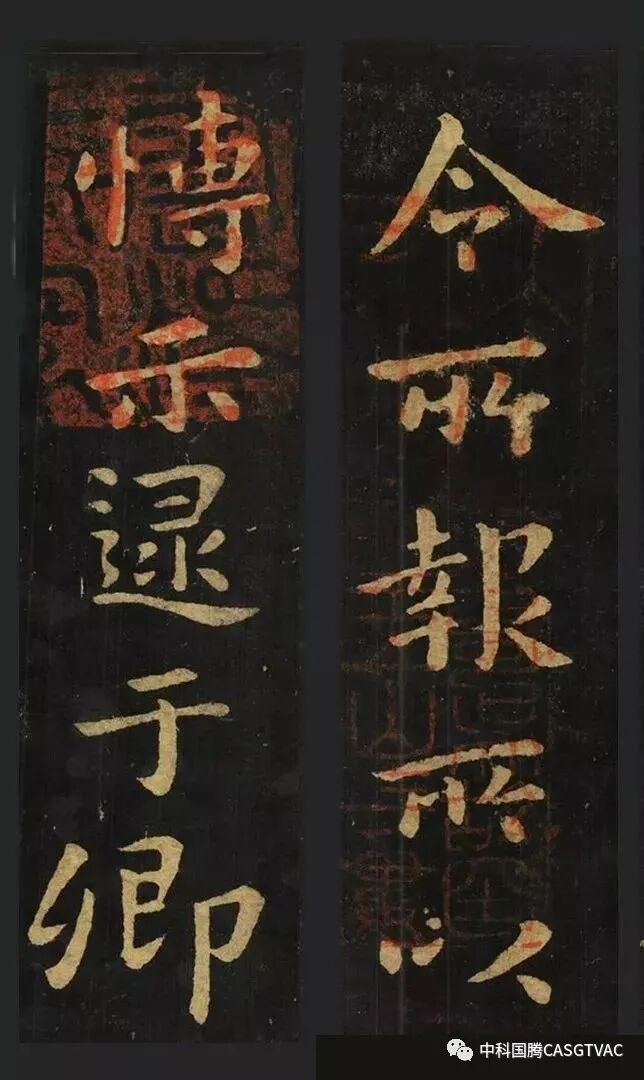 令所報所以
愽示逮于卿
中科国腾CASGTVAC